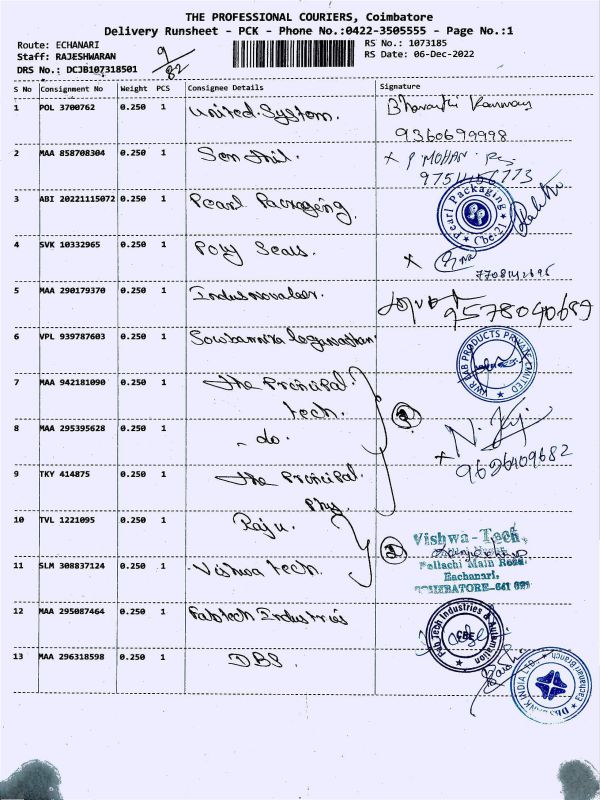 THE PROFESSIONAL COURIERS, Coimbatore
Delivery Runsheet - PCK - Phone No.:0422-3505555 - Page No.:1
Route: ECHANARI
RS No.: 1073185
Staff: RAJESHWARAN
RS Date: 06-Dec-2022
DRS No.: DCJB107318501
9/82
S No Consignment No Weight PCS Consignee Details Signature
1 POL 3700762 0.250 1 United System. Bharathi
9360699998
2 MAA 858708304 0.250 1 Senthil. x P MOHAN
3 ABI 20221115072 0.250 1 Pearl Packageing. Pearl Packaging Cbe-21
4 SVK 10332965 0.250 1 Poly Seals. x
5 MAA 290179370 0.250 1 Indusnovateer.
9578040689
6 VPL 939787603 0.250 1 LAB PRODUCTS PRIVATE LIMITED
7 MAA 942181090 0.250 1 the Principal
tech.
8 MAA 295395628 0.250 1 - do.
x 9626409682
9 TKY 414875 0.250 1 the Principal.
Phy.
10 TVL 1221095 0.250 1 Raju.
11 SLM 308837124 0.250 1 Vishwa tech.
Vishwa-Tech
Pollachi Main Road
Eachanari,
COIMBATORE-641 021
12 MAA 295087464 0.250 1 Fabtech Industries Fab Tech Industries & Automation CBE
13 MAA 296318598 0.250 1 DBS. DBS BANK INDIA LTD., Eachanari Branch